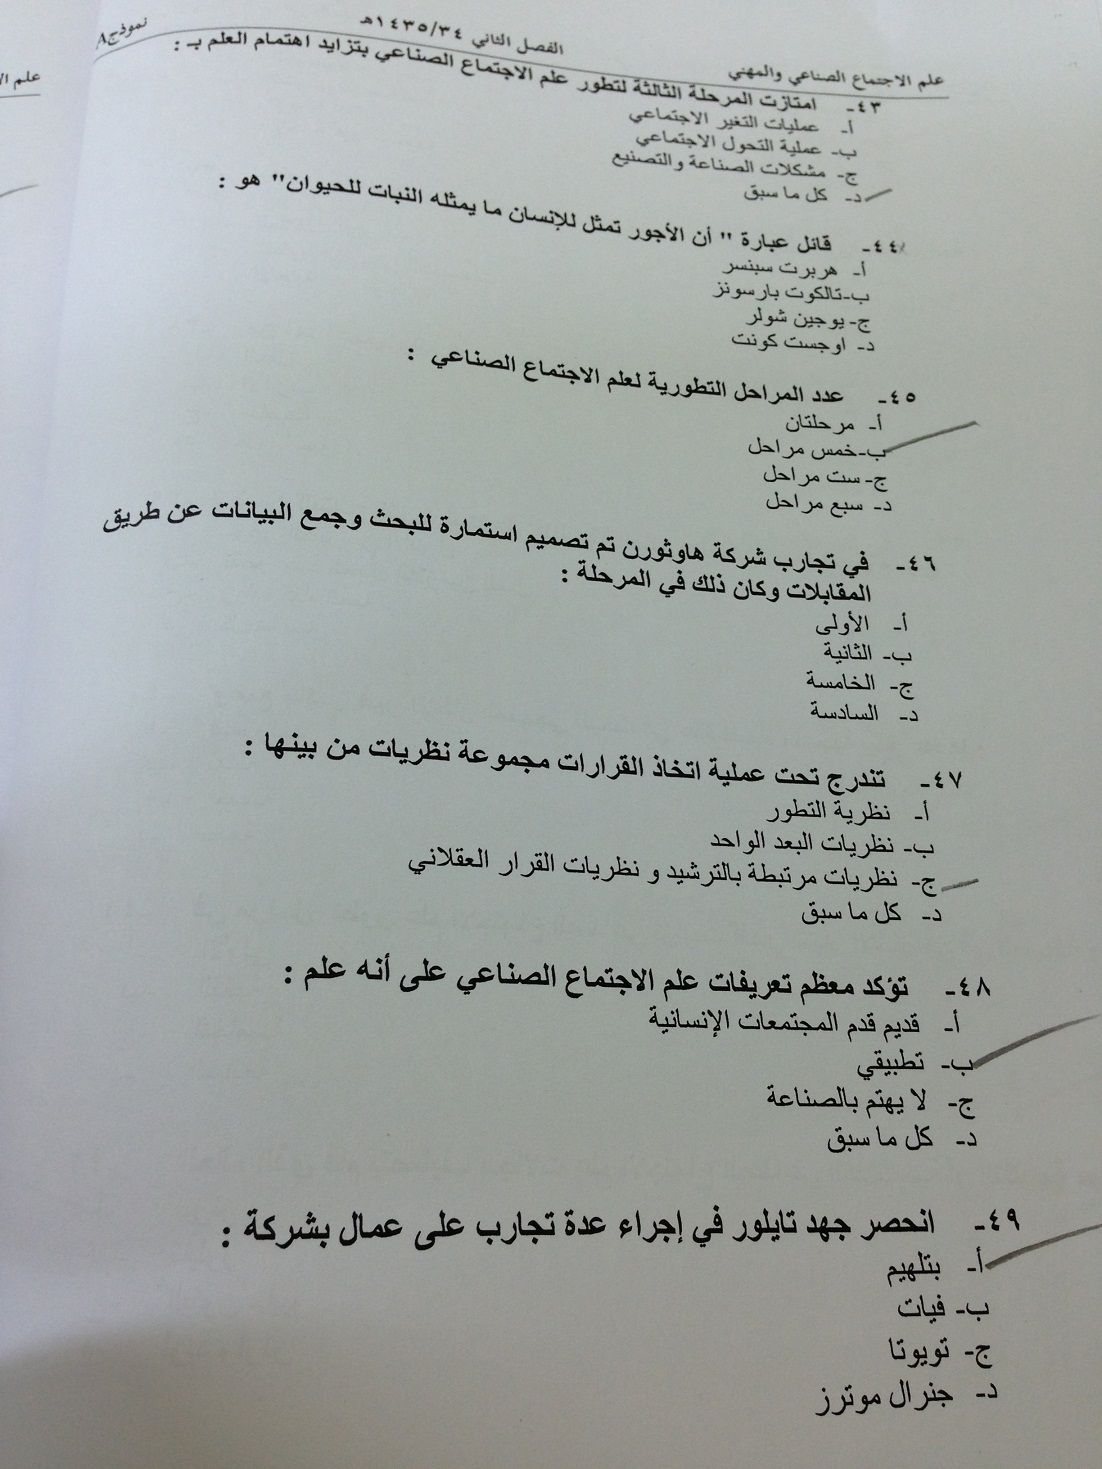 علم الاجتماع الصناعي والمهني الفصل الثاني ١٤٣٥/٣٤هـ نموذج A
٤٣- امتازت المرحلة الثالثة لتطور علم الاجتماع الصناعي بتزايد اهتمام العلم بـ :
أ- عمليات التغير الاجتماعي
ب- عملية التحول الاجتماعي
ج- مشكلات الصناعة والتصنيع
د- كل ما سبق
٤٤- قائل عبارة " أن الأجور تمثل للإنسان ما يمثله النبات للحيوان" هو :
أ- هربرت سبنسر
ب- تالكوت بارسونز
ج- يوجين شولر
د- اوجست كونت
٤٥- عدد المراحل التطورية لعلم الاجتماع الصناعي :
أ- مرحلتان
ب- خمس مراحل
ج- ست مراحل
د- سبع مراحل
٤٦- في تجارب شركة هاوثورن تم تصميم استمارة للبحث وجمع البيانات عن طريق
المقابلات وكان ذلك في المرحلة :
أ- الأولى
ب- الثانية
ج- الخامسة
د- السادسة
٤٧- تندرج تحت عملية اتخاذ القرارات مجموعة نظريات من بينها :
أ- نظرية التطور
ب- نظريات البعد الواحد
ج- نظريات مرتبطة بالترشيد و نظريات القرار العقلاني
د- كل ما سبق
٤٨- تؤكد معظم تعريفات علم الاجتماع الصناعي على أنه علم :
أ- قديم قدم المجتمعات الإنسانية
ب- تطبيقي
ج- لا يهتم بالصناعة
د- كل ما سبق
٤٩- انحصر جهد تايلور في إجراء عدة تجارب على عمال بشركة :
أ- بتلهيم
ب- فيات
ج- تويوتا
د- جنرال موترز